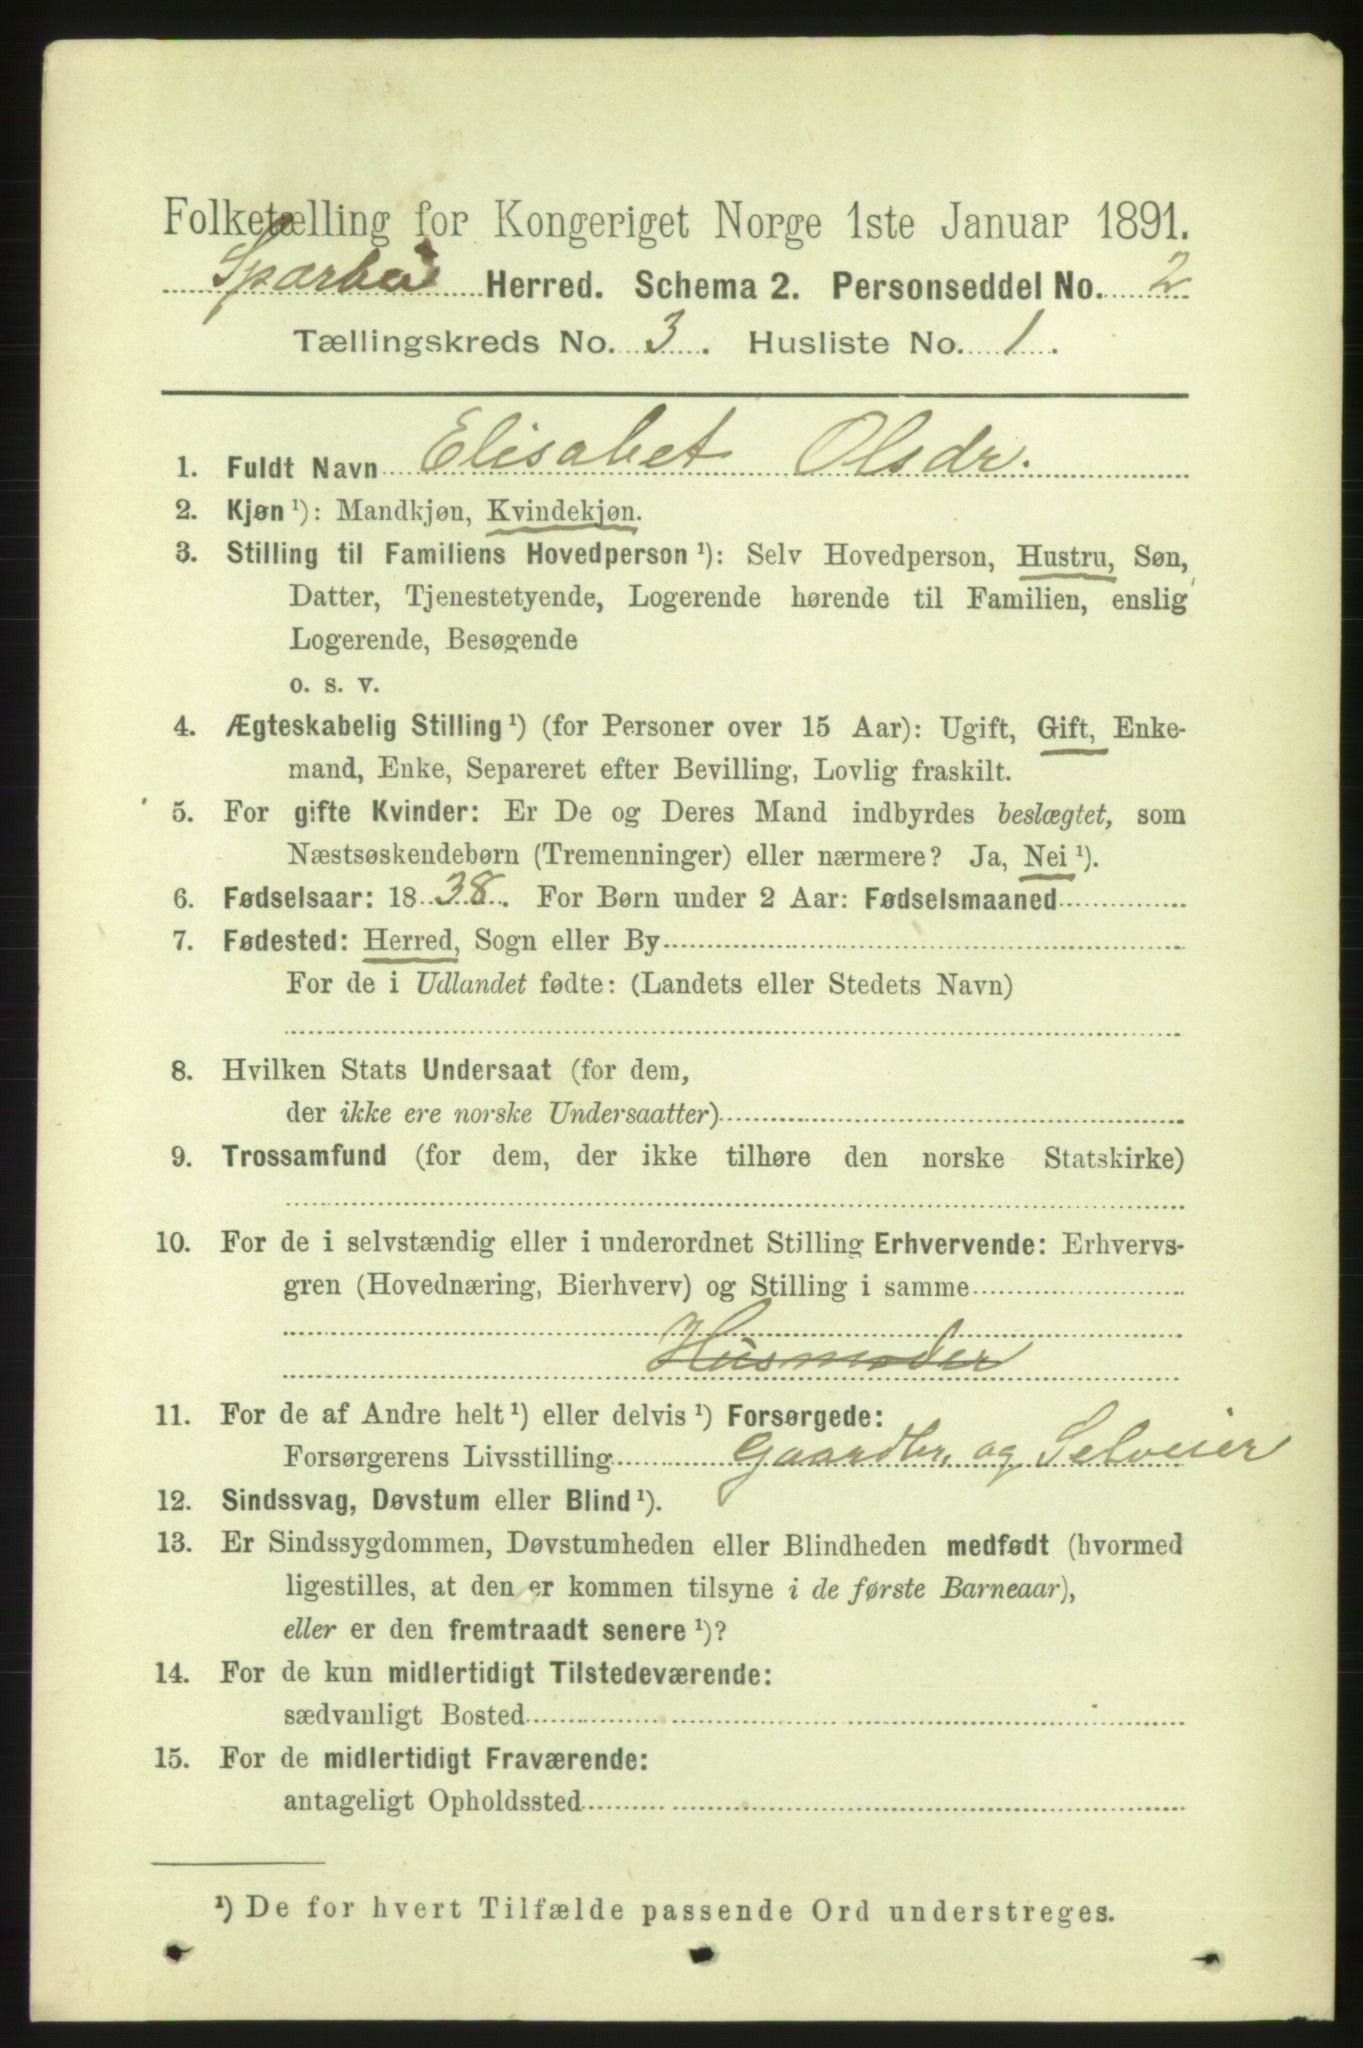 Folketælling for Kongeriget Norge 1ste Januar 1891.
Sparbu Herred. Schema 2. Personseddel No. 2
Tællingskreds No. 3. Husliste No. 1.
1. Fuldt Navn Elisabet Olsdr.
2. Kjøn ¹): Mandkjøn, Kvindekjøn.
3. Stilling til Familiens Hovedperson ¹): Selv Hovedperson, Hustru, Søn,
Datter, Tjenestetyende, Logerende hørende til Familien, enslig
Logerende, Besøgende
o. s. v.
4. Ægteskabelig Stilling ¹) (for Personer over 15 Aar): Ugift, Gift, Enke-
mand, Enke, Separeret efter Bevilling, Lovlig fraskilt.
5. For gifte Kvinder: Er De og Deres Mand indbyrdes beslægtet, som
Næstsøskendebørn (Tremenninger) eller nærmere? Ja, Nei ¹).
6. Fødselsaar: 1838. For Børn under 2 Aar: Fødselsmaaned
7. Fødested: Herred, Sogn eller By
For de i Udlandet fødte: (Landets eller Stedets Navn)
8. Hvilken Stats Undersaat (for dem,
der ikke ere norske Undersaatter)
9. Trossamfund (for dem, der ikke tilhøre den norske Statskirke)
10. For de i selvstændig eller i underordnet Stilling Erhvervende: Erhvervs-
gren (Hovednæring, Bierhverv) og Stilling i samme
Husmoder
11. For de af Andre helt ¹) eller delvis ¹) Forsørgede:
Forsørgerens Livsstilling Gaardbr. og Selveier
12. Sindssvag, Døvstum eller Blind ¹).
13. Er Sindssygdommen, Døvstumheden eller Blindheden medfødt (hvormed
ligestilles, at den er kommen tilsyne i de første Barneaar),
eller er den fremtraadt senere ¹)?
14. For de kun midlertidigt Tilstedeværende:
sædvanligt Bosted
15. For de midlertidigt Fraværende:
antageligt Opholdssted
¹) De for hvert Tilfælde passende Ord understreges.